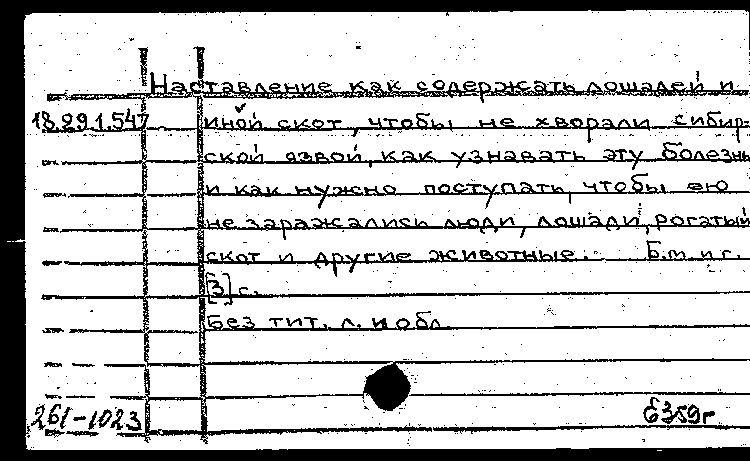 Наставление как содержать лошадей и
18.291.547 иной скот, чтобы не хворали сибир-
ской язвой, как узнавать эту болезнь
и как нужно поступать, чтобы ею
не заражались люди, лошади, рогатый
скот и другие животные. Б.м. и г.
[3] с.
Без тит. л. и обл.
261-1023 6359г